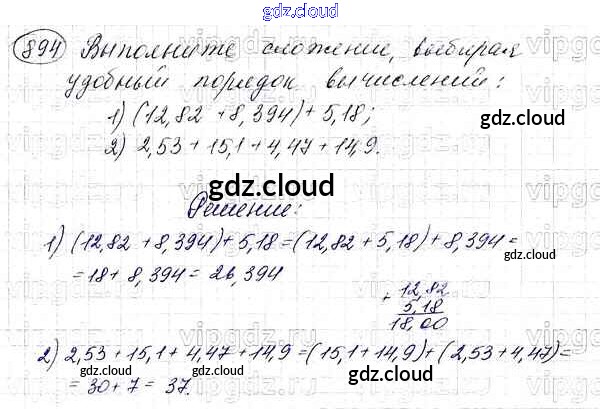 gdz.cloud
894 Выполните сложение, выбирая
удобный порядок вычислений:
1) (12,82 + 8,394) + 5,18;
gdz.cloud
2) 2,53 + 15,1 + 4,47 + 14,9.
gdz.cloud
Решение:
1) (12,82 + 8,394) + 5,18 = (12,82 + 5,18) + 8,394 =
= 18 + 8,394 = 26,394
+ 12,82
5,18
18,00
gdz.cloud
2) 2,53 + 15,1 + 4,47 + 14,9 = (15,1 + 14,9) + (2,53 + 4,47) =
= 30 + 7 = 37.
gdz.cloud
gdz.cloud